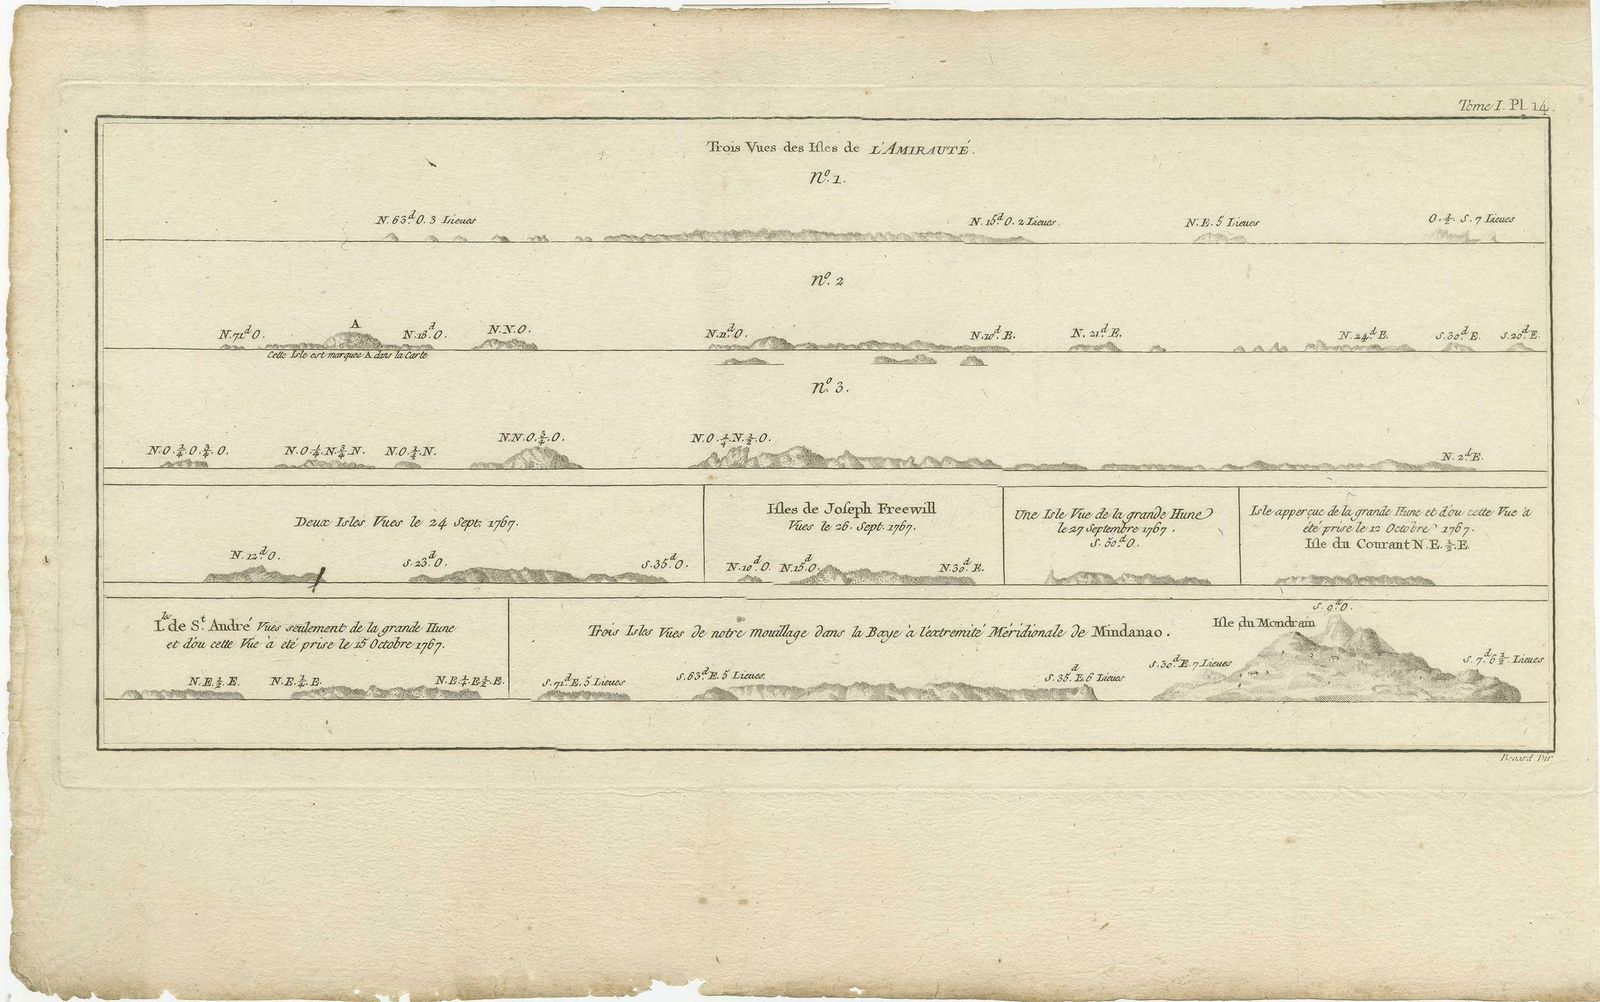 Tome I. Pl. 14.
Trois Vues des Isles de L'AMIRAUTÉ.
N.º 1.
N. 63.d O. 3 Lieues N. 15.d O. 2 Lieues. N. E. 5 Lieues O. ¼ S. 7 Lieues
N.º 2
A
N. 71.d O. N. 18.d O. N. N. O. N. 11.d O. N. 10.d E. N. 21.d E. N. 24.d E. S. 30.d E. S. 20.d E.
Cette Isle est marquée A dans la Carte
N.º 3.
N. O. ¾ O. ¾ O. N. O. ¼ N. ¾ N. N. O. ¼ N. N. N. O. ¾ O. N. O. ¼ N. ½ O. N. 2.d E.
Deux Isles Vues le 24 Sept. 1767.
N. 12.d O. S. 23.d O. S. 35.d O.
Isles de Joseph Freewill
Vues le 26. Sept. 1767.
N. 10.d O. N. 15.d O. N. 30.d E.
Une Isle Vue de la grande Hune
le 27 Septembre 1767.
S. 50.d O.
Isle apperçue de la grande Hune et d'ou cette Vue à
été prise le 12 Octobre 1767.
Isle du Courant N. E. ½ E.
I.les de S.t André Vues seulement de la grande Hune
et d'ou cette Vue à été prise le 15 Octobre 1767.
N. E. ½ E. N. E. ¼ E. N. E. ¼ E. ½ E.
Trois Isles Vues de notre mouillage dans la Baye à l'extremité Méridionale de Mindanao.
S. 71.d E. 5 Lieues S. 63.d E. 5 Lieues. S. 35.d E. 6 Lieues
S. 9.d O.
Isle du Mondrain
S. 30.d E. 7 Lieues S. 7.d 6 ½ Lieues
Benard Dir.